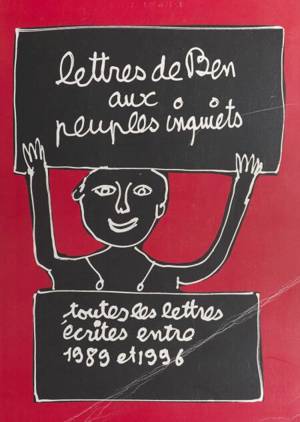 lettres de Ben
aux
peuples inquiets
toutes les lettres
écrites entre
1989 et 1996